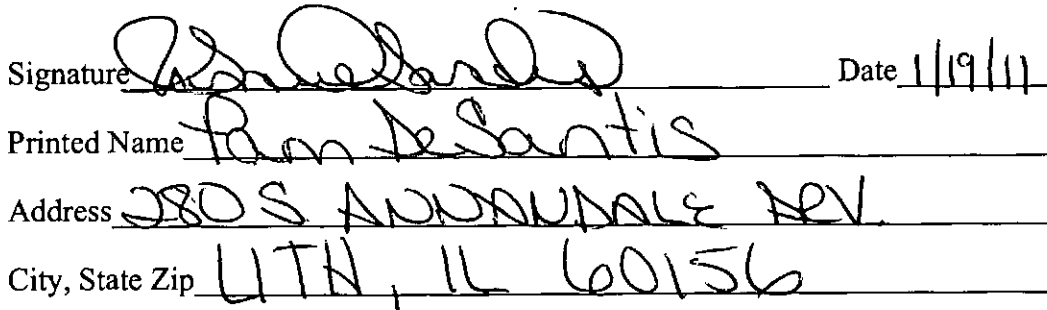 Signature Pam DeSantis Date 1/19/11
Printed Name Pam DeSantis
Address 280 S. ANNANDALE DRV.
City, State Zip LITH, IL 60156